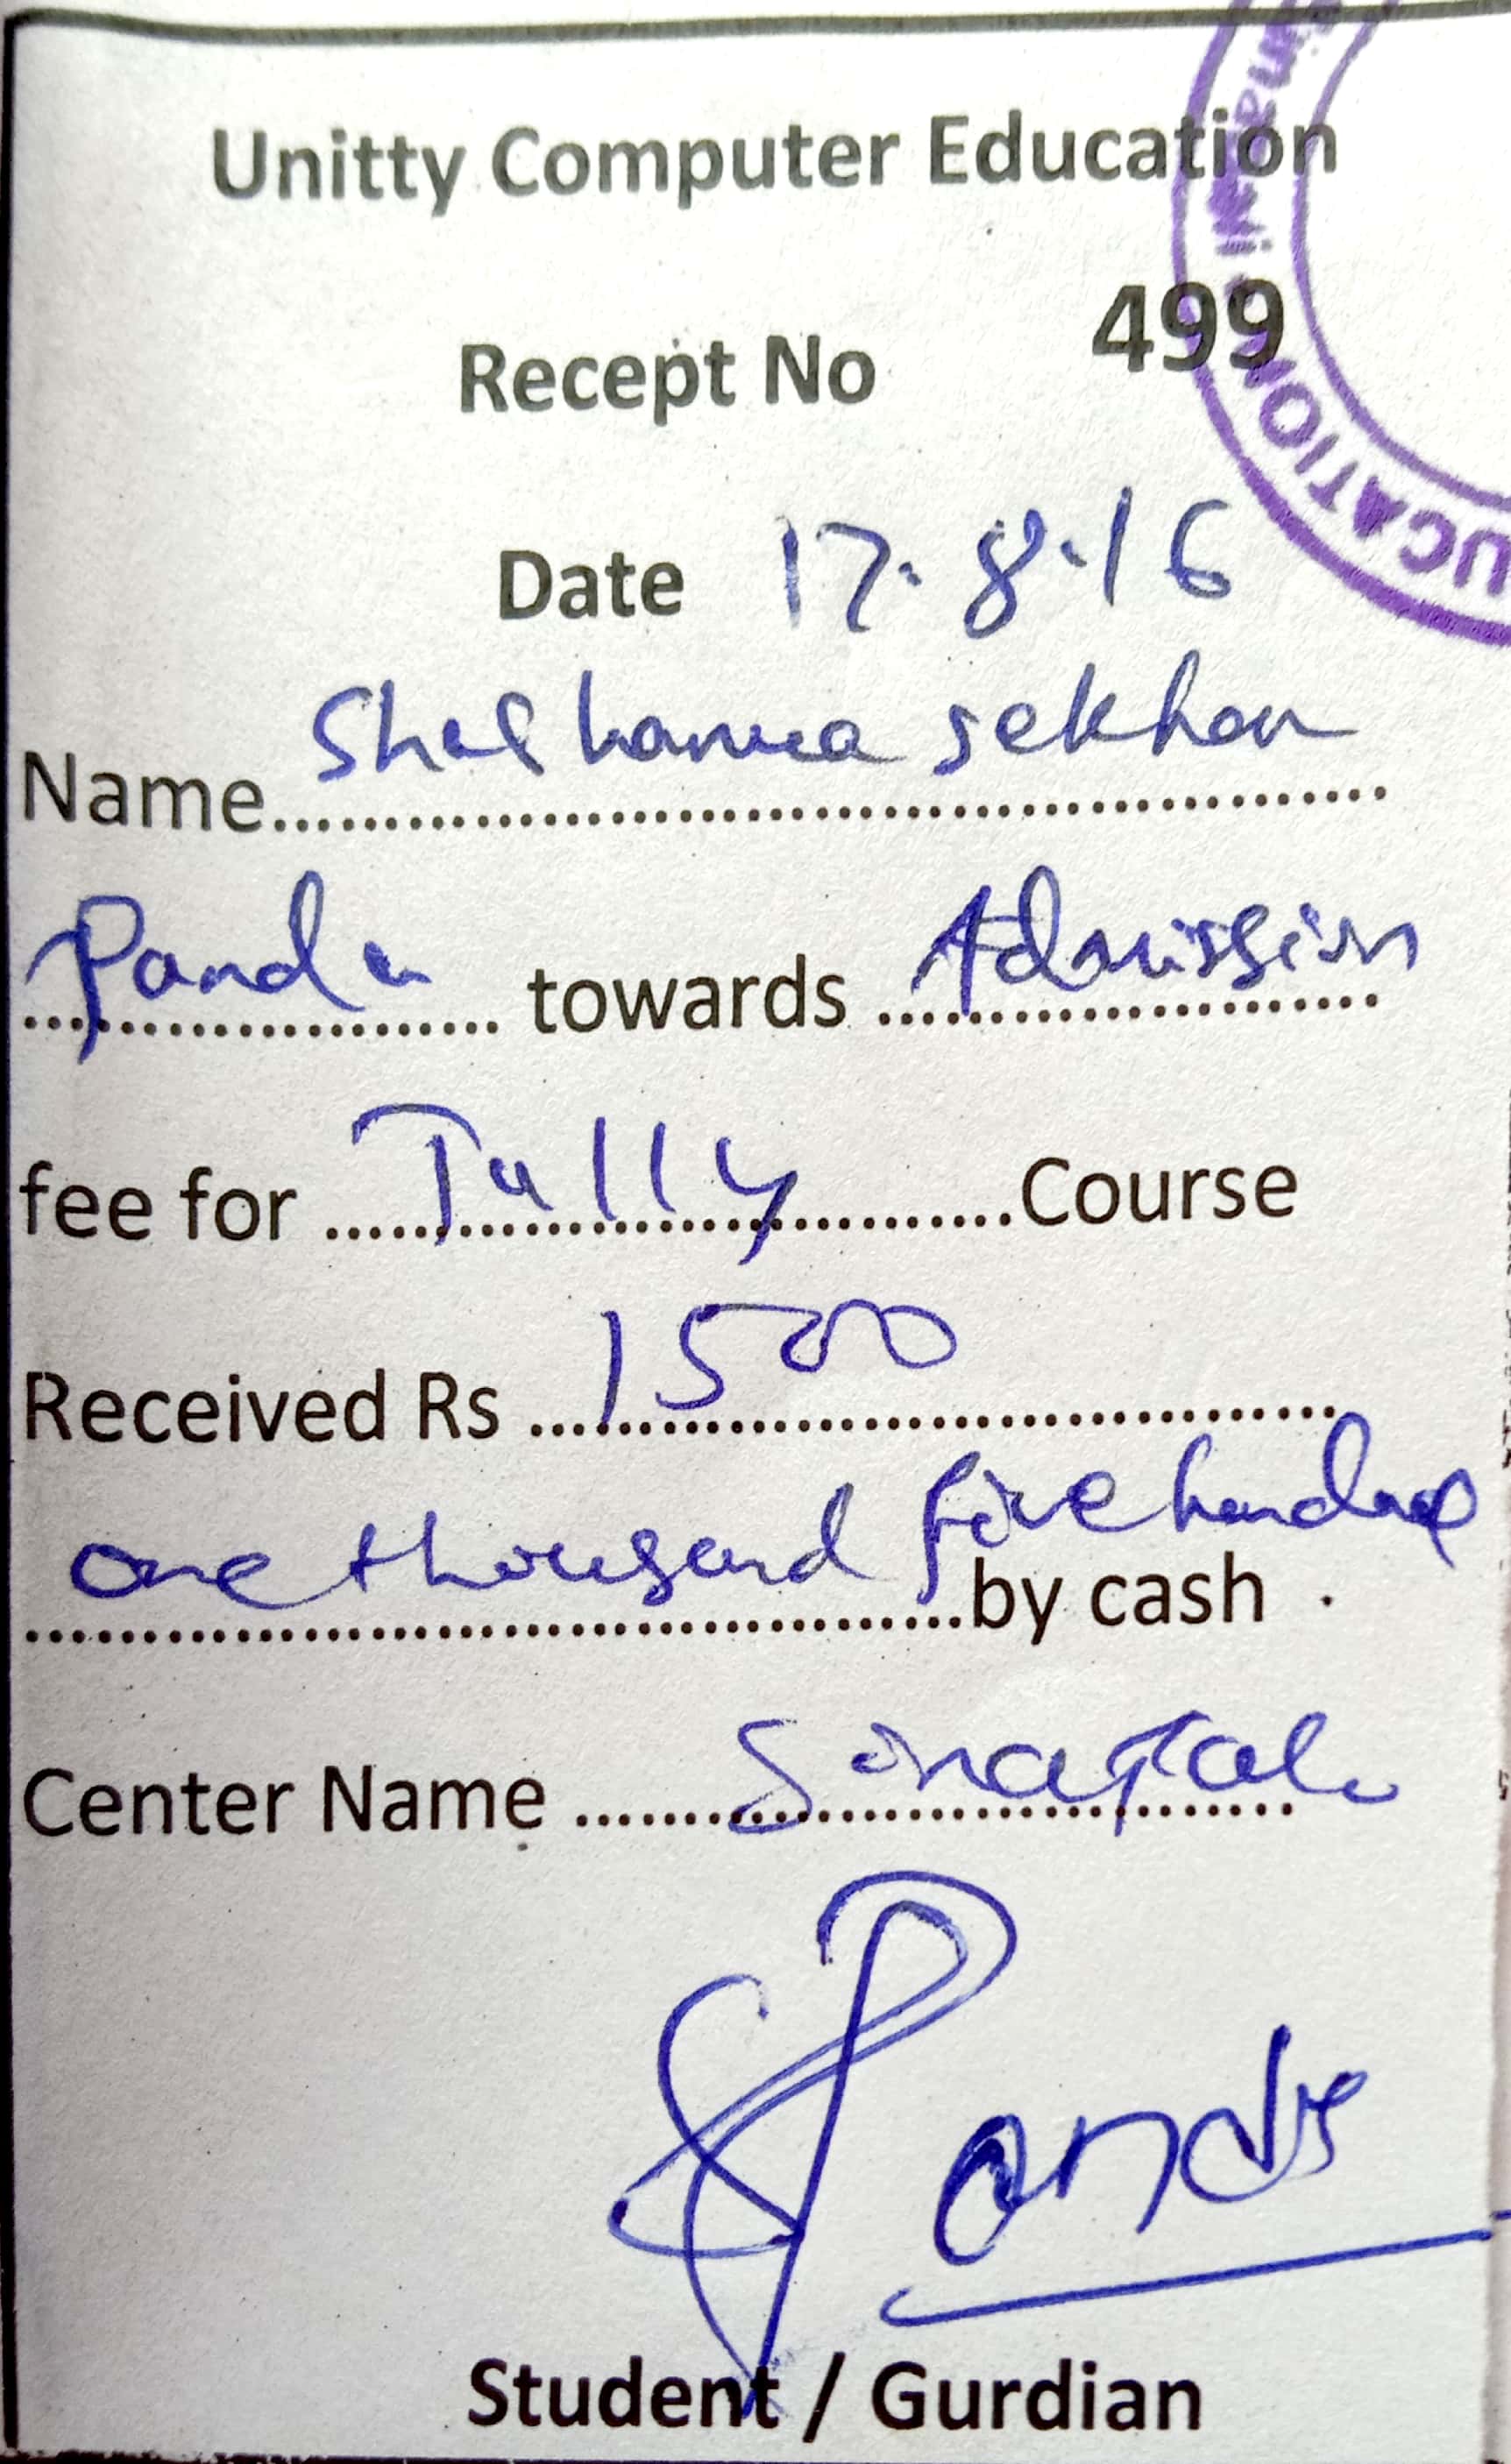 Unitty Computer Education
Recept No 499
Date 17.8.16
Name sekhar
Panda towards Admission
fee for Tally Course
Received Rs 1500
one thousand five hundred
by cash
Center Name
Panda
Student / Gurdian
UCATION